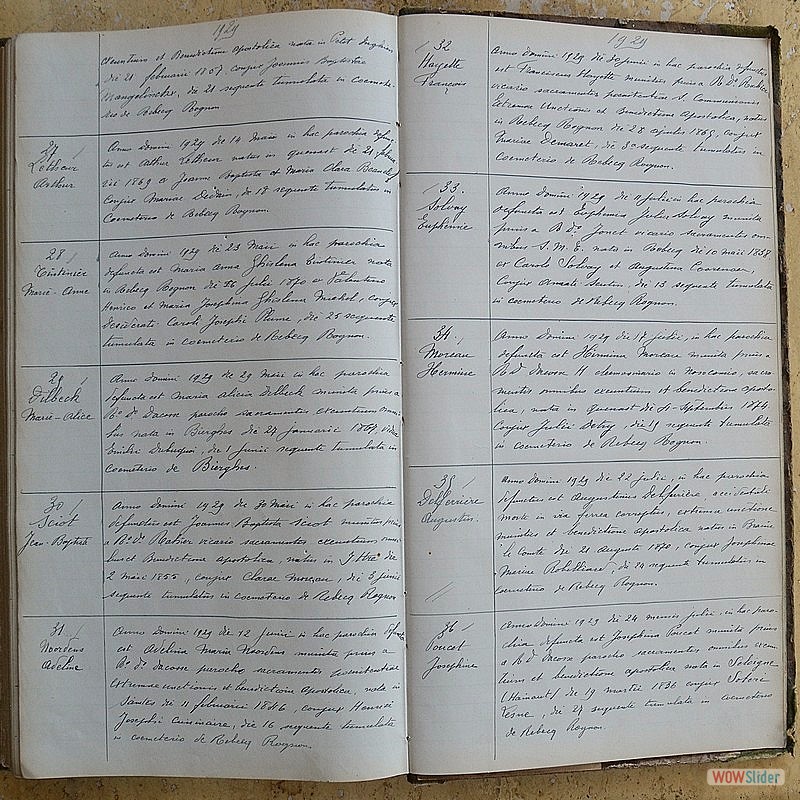 1929
exeuntium et Benedictione apostolica nata in Petit Enghien
die 21 februarii 1807 conjux Joannis Baptistae
die 21 sequente tumulata in coemete-
rio de Rebecq Rognon
27
Letheur
Arthur
Anno Domini 1929 die 14 Maii in hac parochia defunc-
tus est Arthur Letheur natus in Quenast die 21 februa-
rii 1869 e Joanne Baptista et Maria Clara
conjux Mariae die 17 sequente tumulatus in
Coemeterio de Rebecq Rognon.
28
Tintenier
Marie-Anne
Anno Domini 1929 die 23 Maii in hac parochia
defuncta est Maria Anna Ghislena Tintenier nata
in Rebecq Rognon die 26 julii 1870 e Valentino
Henrico et Maria Josephina Ghislena conjux
desiderati Caroli Josephi Plume, die 25 sequente
tumulata in coemeterio de Rebecq Rognon.
29
Dilbeck
Marie-Alice
Anno Domini 1929 die 29 Maii in hac parochia
defuncta est Maria Alicia Dilbeck munita prius a
Rdo Do Dacosse parocho sacramentis exeuntium omni-
bus nata in Bierghes die 27 januarii 1869, vidua
Emidii die 1 junii sequente tumulata in
Coemeterio de Bierghes.
30
Sciot
Jean-Baptiste
Anno Domini 1929 die 30 Maii in hac parochia
defunctus est Joannes Baptista Sciot munitus prius
a Rdo Do vicario sacramentis exeuntium omni-
bus et Benedictione apostolica, natus in Ittre die
2 maii 1855, conjux Clarae Moreau, die 3 junii
sequente tumulatus in coemeterio de Rebecq Rognon
31
Noordens
Adeline
Anno Domini 1929 die 12 junii in hac parochia defuncta
est Adelina Maria Noordens munita prius a
Rdo Do Dacosse parocho sacramentis poenitentiae
extremae unctionis et benedictione apostolica, nata in
Saintes die 11 februarii 1846, conjux Henrici
Josephi die 16 sequente tumulata
in coemeterio de Rebecq Rognon.
1929
32
Hayette
François
Anno Domini 1929 die junii in hac parochia defunctus
est Franciscus Hayette munitus prius a Rdo Do
vicario sacramentis poenitentiae S. Communionis
Extremae Unctionis et Benedictione Apostolica, natus
in Rebecq Rognon die 28 1865, conjux
Mariae Demaret, die sequente tumulatus in
coemeterio de Rebecq Rognon.
33
Solvay
Euphémie
Anno Domini 1929 die 11 julii in hac parochia
defuncta est Euphemia Julia Solvay munita
prius a Rdo Do Jonet vicario sacramentis om-
nibus S. M. E. nata in Rebecq die 10 maii 1858
e Carolo Solvay et Augustina
Conjux Amati die 13 sequente tumulata
in coemeterio de Rebecq Rognon.
34
Moreau
Hermine
Anno Domini 1929 die 17 julii, in hac parochia
defuncta est Hermina Moreau munita prius a
Rdo Dacosse H eleemosinario in Nosocomio, sacra-
mentis omnibus exeuntium et benedictione aposto-
lica, nata in Quenast die 4 Septembris 1874
Conjux Julii die 19 sequente tumulata
in coemeterio de Rebecq Rognon.
35
Delferrière
Augustin
Anno Domini 1929 die 22 julii, in hac parochia
defunctus est Augustinus Delferrière, accidentale
morte in via ferrea correptus, extrema unctione
munitus et benedictione apostolica natus in Braine
le Comte die 21 Augusti 1870, conjux Josephinae
Mariae Robilliard, die 24 sequente tumulatus in
coemeterio de Rebecq Rognon.
36
Poucet
Josephine
Anno Domini 1929 die 24 mensis julii, in hac paro-
chia defuncta est Josephina Poucet munita prius
a Rdo Dacosse parocho sacramentis omnibus exeun-
tium et benedictione apostolica nata in
(Hainaut) die 19 martii 1836 conjux
die 27 sequente tumulata in coemeterio
de Rebecq Rognon.
WOWSlider